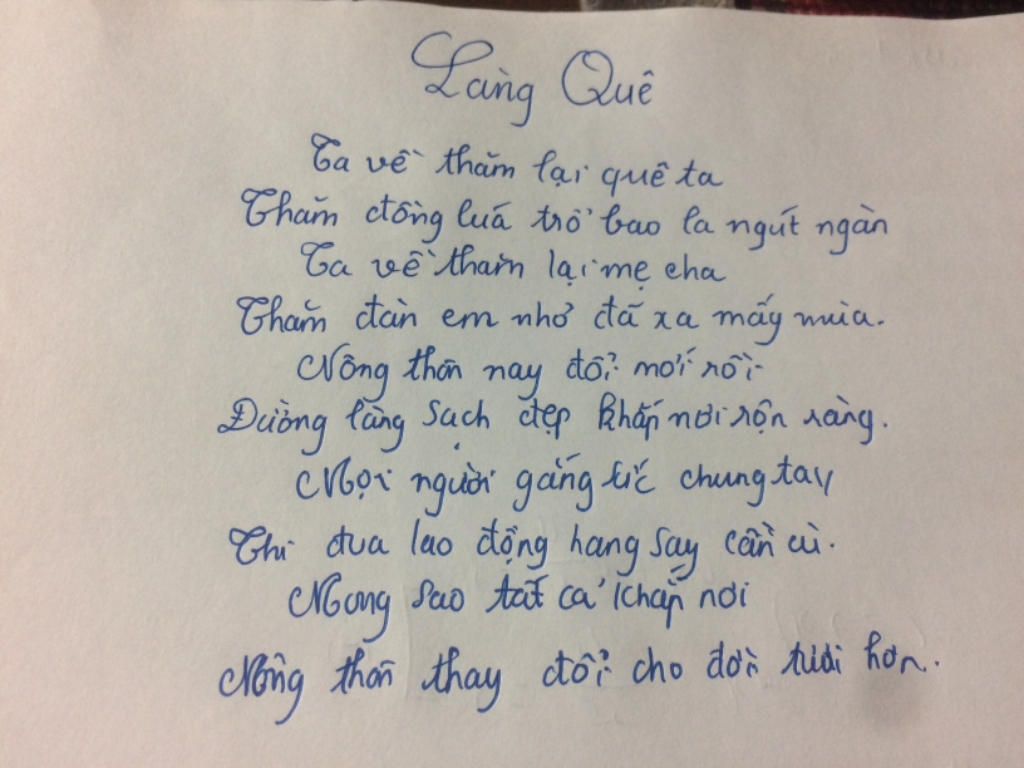 Làng Quê
Ta về thăm lại quê ta
Thăm đồng luá trổ bao la ngút ngàn
Ta về thăm lại mẹ cha
Thăm đàn em nhỏ đã xa mấy mùa.
Nông thôn nay đổi mới rồi
Đường làng sạch đẹp khắp nơi rộn ràng.
Mọi người gắng sức chung tay
Thi đua lao động hang say cần cù.
Mong sao tất cả khắp nơi
Nông thôn thay đổi cho đời tươi hơn.